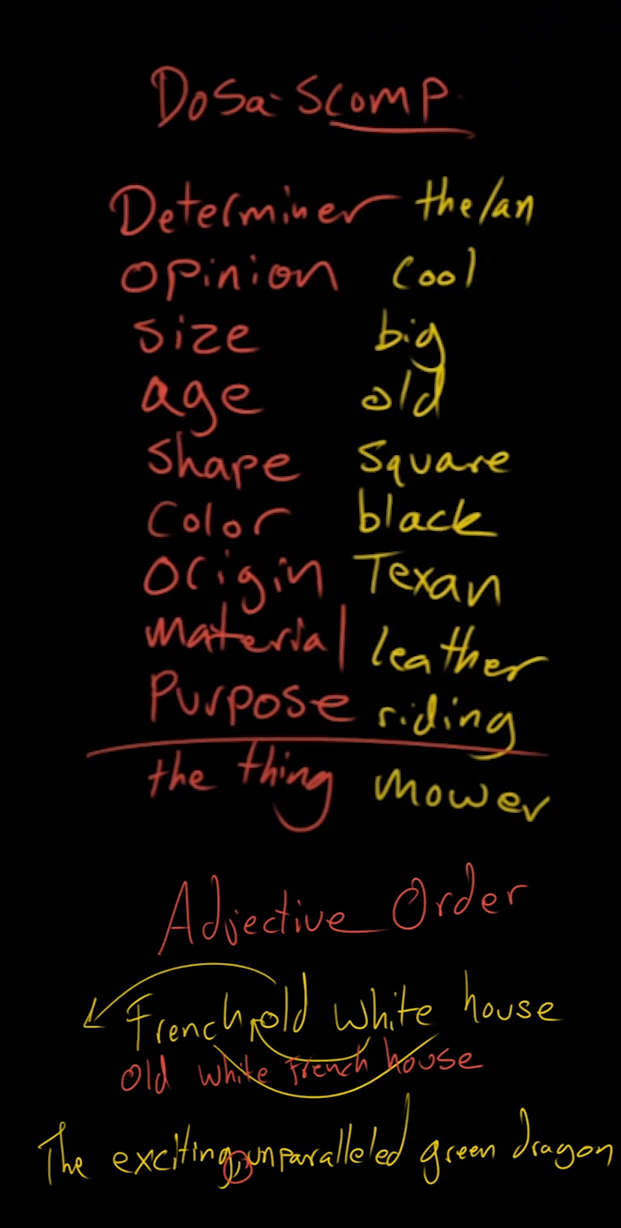 DoSa-Scomp
Determiner the/an
Opinion cool
size big
age old
Shape Square
Color black
Origin Texan
Material leather
Purpose riding
the thing mower
Adjective Order
French, old white house
Old white French house
The exciting, unparalleled green dragon